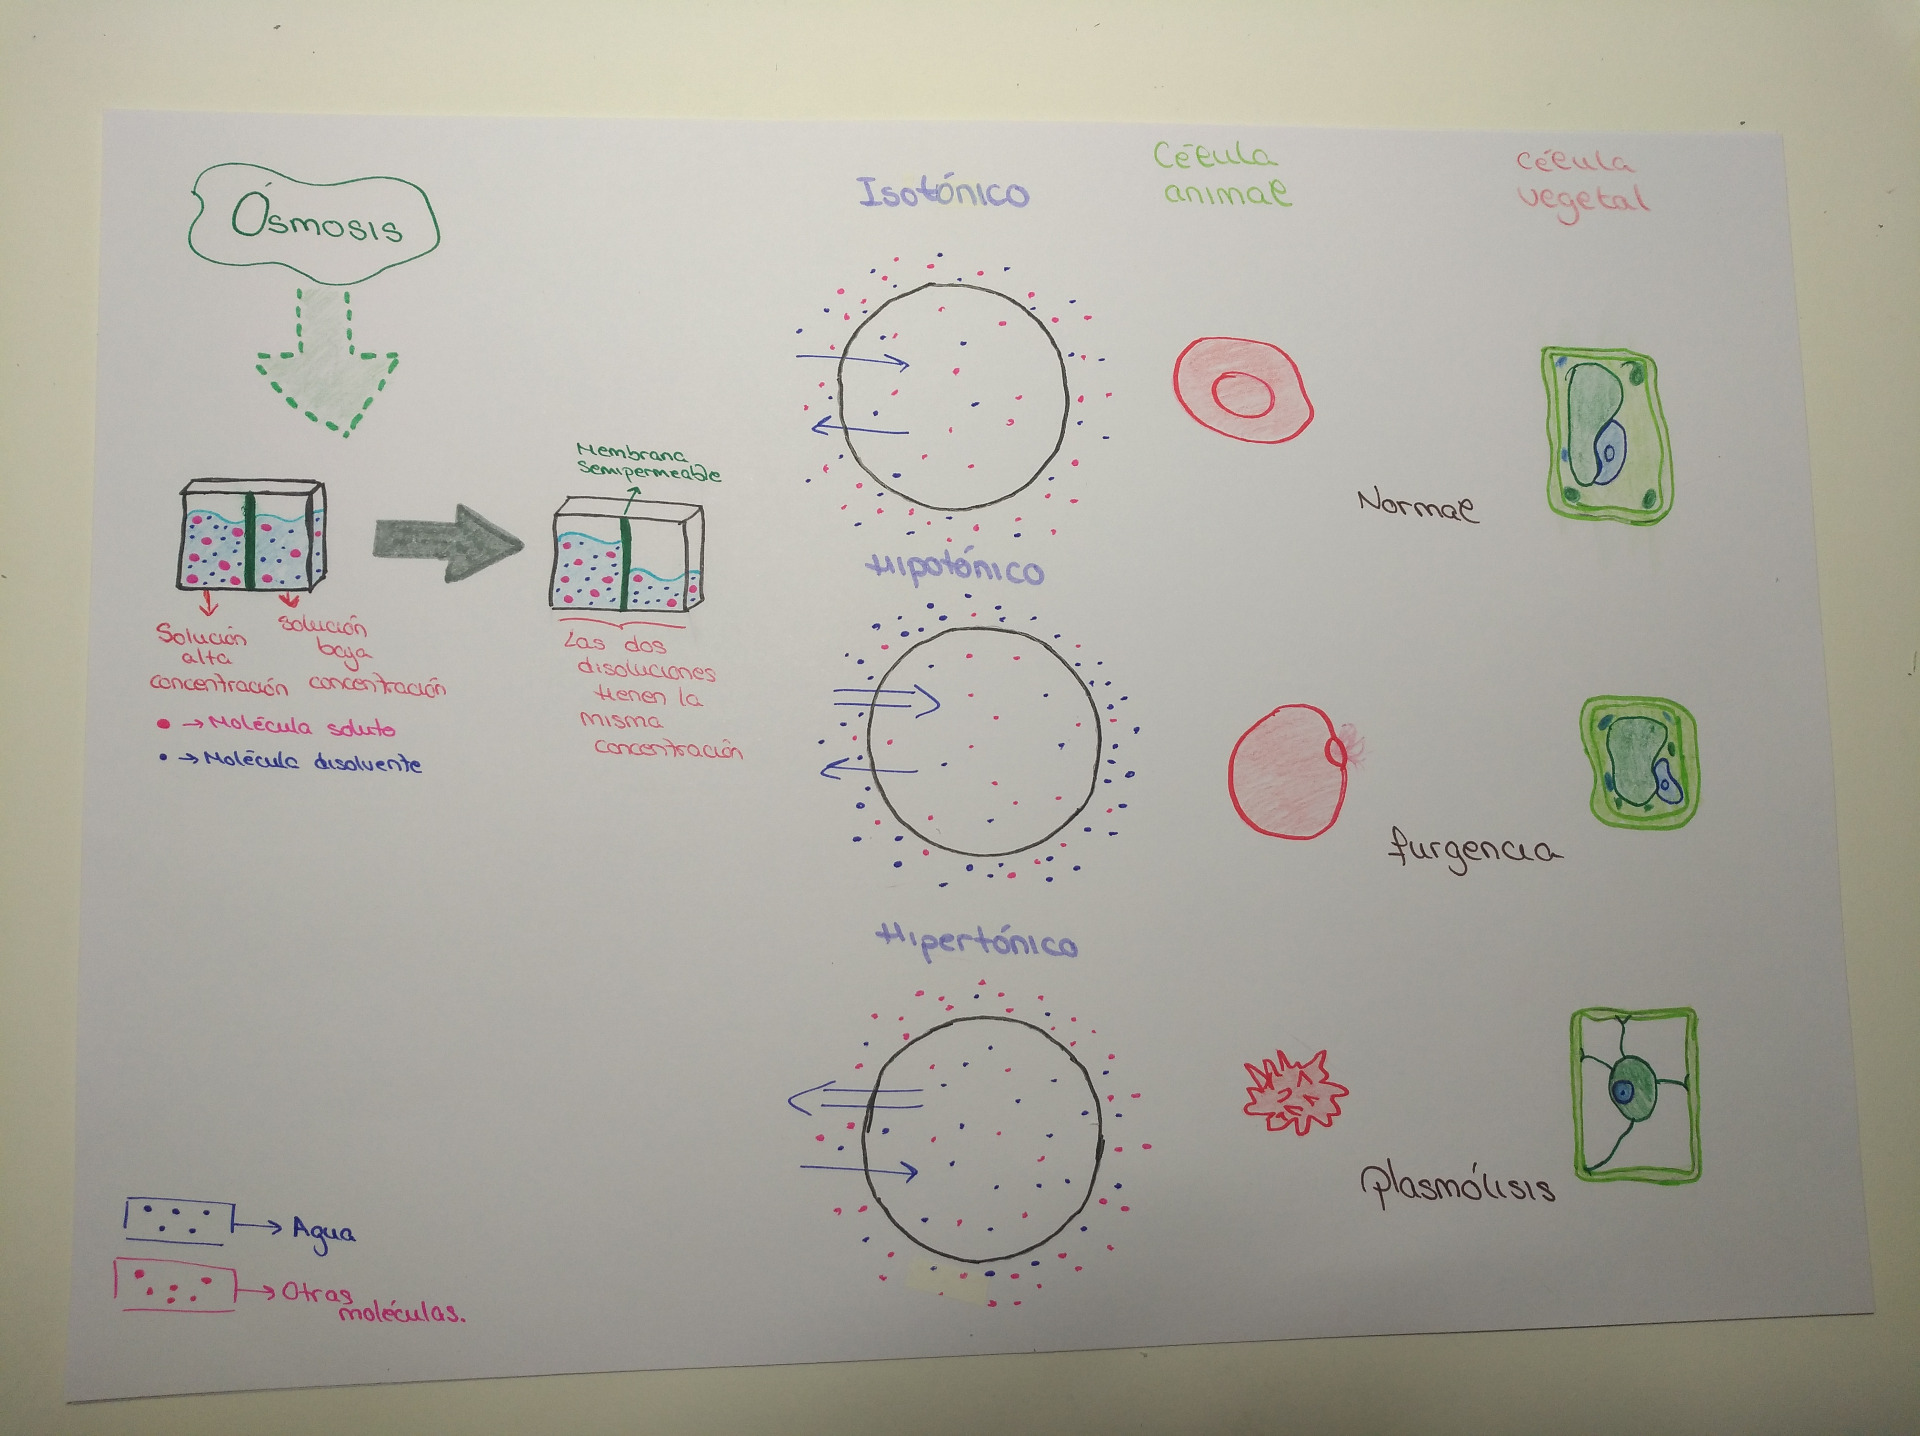 Ósmosis
Membrana
semipermeable
Solución
alta
concentración
solución
baja
concentración
Las dos
disoluciones
tienen la
misma
concentración
→ Molécula soluto
→ Molécula disolvente
Agua
Otras
moléculas.
Isotónico
Célula
animal
Célula
vegetal
Normal
Hipotónico
turgencia
Hipertónico
plasmólisis